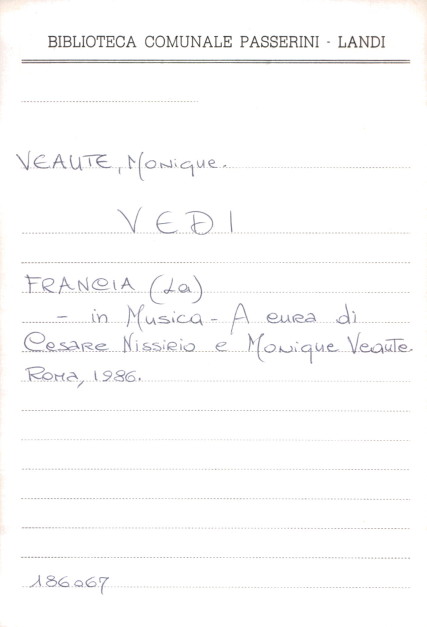 BIBLIOTECA COMUNALE PASSERINI - LANDI
VEAUTE, Monique.
VEDI
FRANCIA (La)
- in Musica - A cura di
Cesare Nissirio e Monique Veaute.
Roma, 1986.
186067